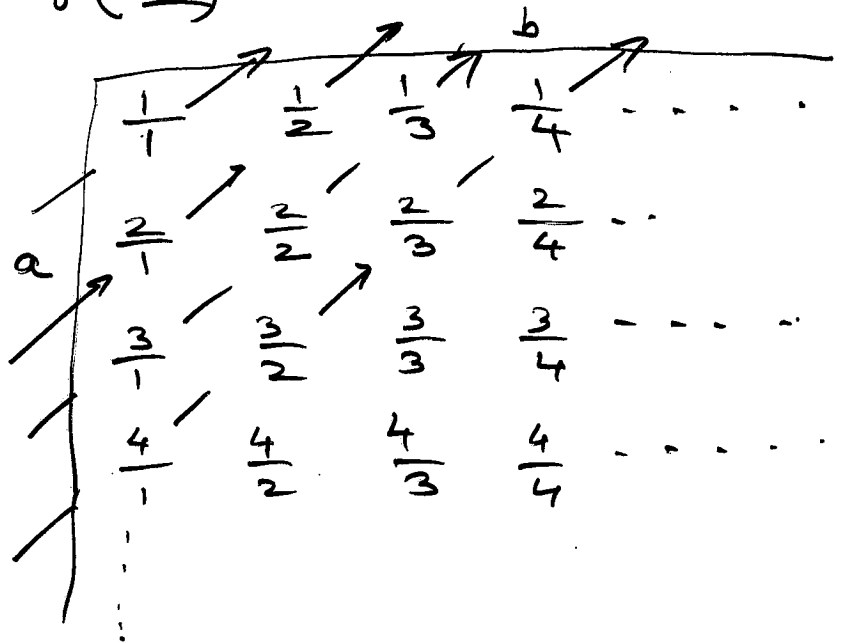 b
1/1 1/2 1/3 1/4 - - - .
2/1 2/2 2/3 2/4 - .
a
3/1 3/2 3/3 3/4 - - - - .
4/1 4/2 4/3 4/4 . - . . .